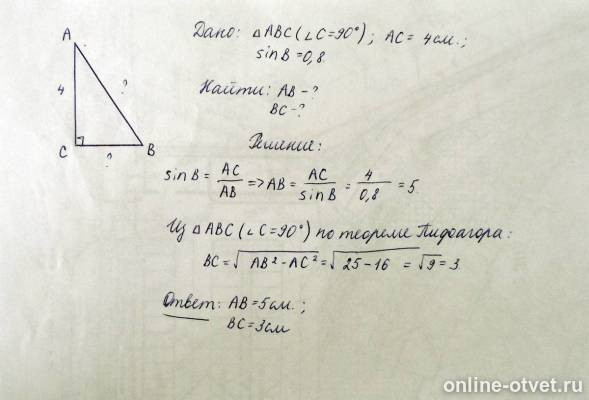 Дано: △ABC (∠C=90°); AC= 4см.;
sinB=0,8.
Найти: AB-?
BC-?
Решение:
A
4
?
C
?
B
sinB= AC/AB => AB= AC/sinB = 4/0,8 = 5.
Из △ABC (∠C=90°) по теореме Пифагора:
BC=√AB²-AC² = √25-16 = √9=3.
Ответ: AB=5см.;
BC=3см
online-otvet.ru